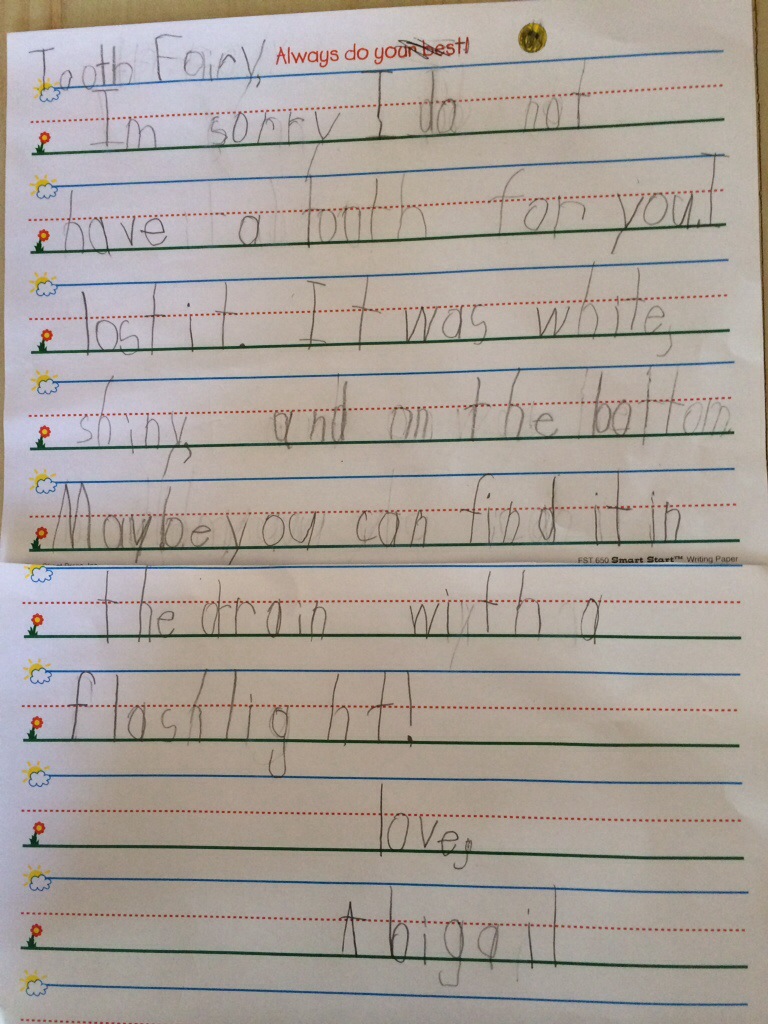 Tooth Fairy, Always do your best!
Im sorry I do not
have a tooth for you. I
lost it. It was white,
shiny, and on the bottom
Maybe you can find it in
FST 650 Smart Start™ Writing Paper
the drain with a
flashlight!
love,
Abigail